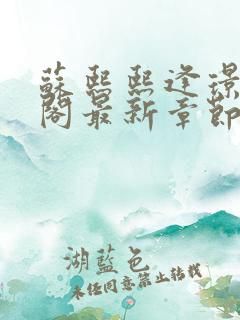 蘇熙熙逢璟
閣最新章節
湖藍色
未經同意禁止轉載